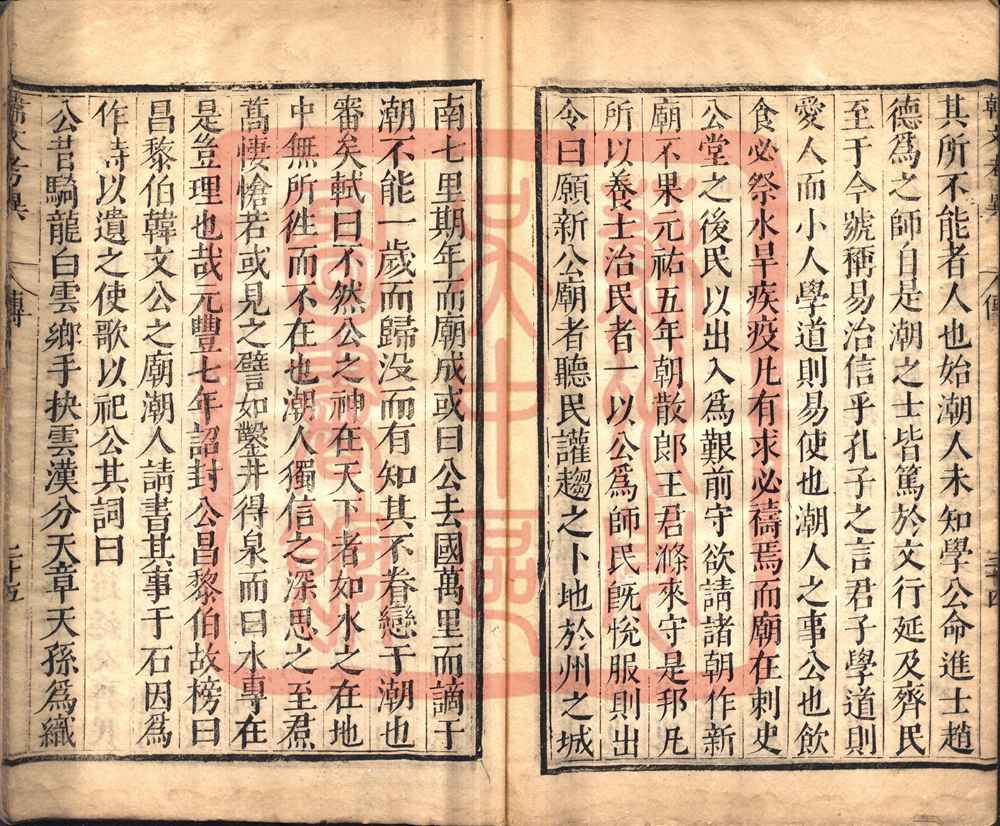 其所不能者人也始潮人未知學公命進士趙
德爲之師自是潮之士皆篤於文行延及齊民
至于今號稱易治信乎孔子之言君子學道則
愛人而小人學道則易使也潮人之事公也飲
食必祭水旱疾疫凡有求必禱焉而廟在刺史
公堂之後民以出入爲艱前守欲請諸朝作新
廟不果元祐五年朝散郎王君滌來守是邦凡
所以養士治民者一以公爲師民旣悅服則出
令曰願新公廟者聽民讙趨之卜地於州之城
南七里期年而廟成或曰公去國萬里而謫于
潮不能一歲而歸没而有知其不眷戀于潮也
審矣軾曰不然公之神在天下者如水之在地
中無所徃而不在也潮人獨信之深思之至焄
蒿悽愴若或見之譬如鑿井得泉而曰水專在
是豈理也哉元豐七年詔封公昌黎伯故榜曰
昌黎伯韓文公之廟潮人請書其事于石因爲
作詩以遺之使歌以祀公其詞曰
公昔騎龍白雲鄉手抉雲漢分天章天孫爲織
傳
二十五